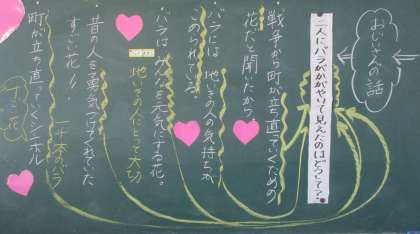 おじいさんの話
二人にバラがかがやいて見えたのはどうして?
戦争から町が立ち直っていくための
花だと聞いたから。
・バラには地いきの人の気持ちが
こめられている。
・バラはみんなを元気にする花。
地いきの人にとって大切
昔の人を勇気づけてくれていた
すごい花!!
一千本のバラ
・町が立ち直ってくシンボル
すごい花